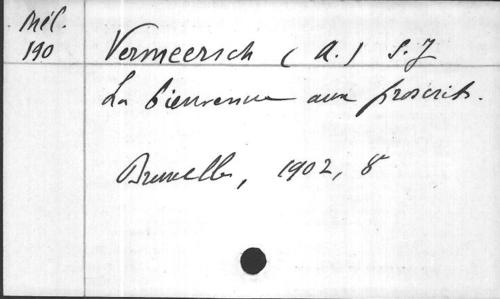 Mél.
190
Vermeersch (A.) S.J
La bienvenue aux proscrits.
Bruxelles, 1902, 8